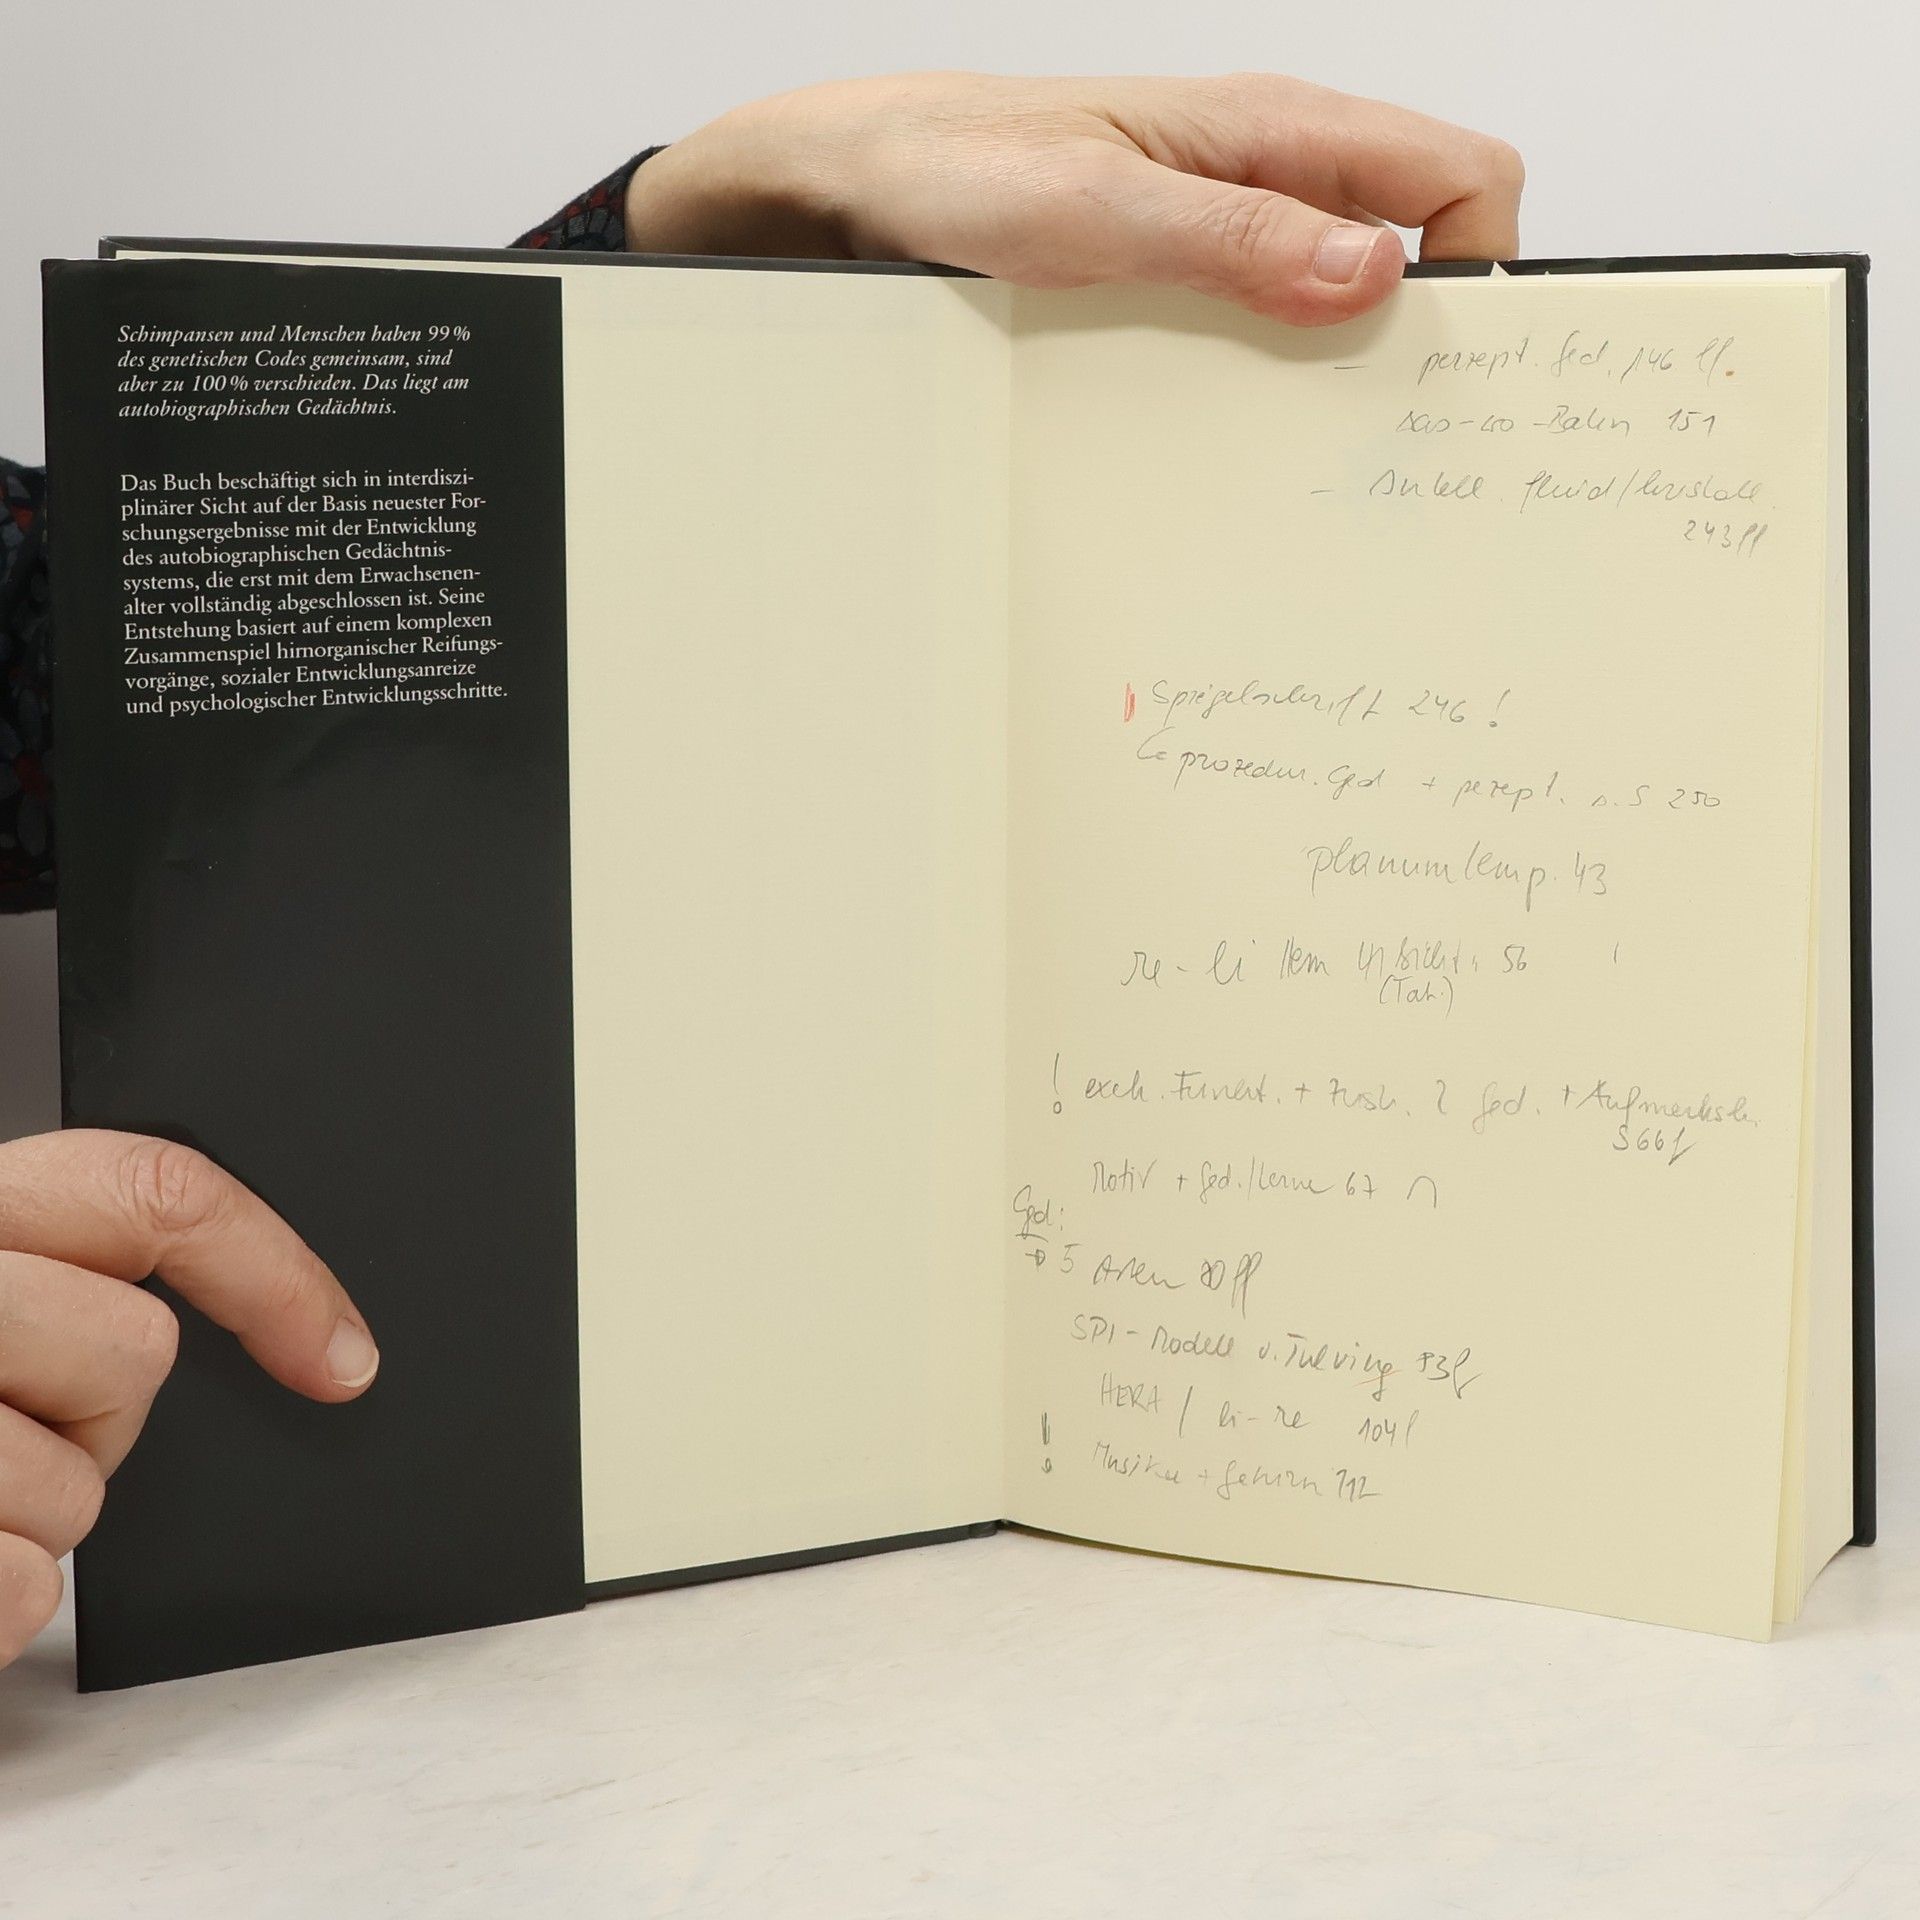 Schimpansen und Menschen haben 99 %
des genetischen Codes gemeinsam, sind
aber zu 100 % verschieden. Das liegt am
autobiographischen Gedächtnis.
Das Buch beschäftigt sich in interdiszi-
plinärer Sicht auf der Basis neuester For-
schungsergebnisse mit der Entwicklung
des autobiographischen Gedächtnis-
systems, die erst mit dem Erwachsenen-
alter vollständig abgeschlossen ist. Seine
Entstehung basiert auf einem komplexen
Zusammenspiel hirnorganischer Reifungs-
vorgänge, sozialer Entwicklungsanreize
und psychologischer Entwicklungsschritte.
– perzept. Ged. 146 ff.
Was-wo-Bahn 151
– fluid/kristall.
243 ff
Spiegelschrift 246 !
prozedur. Ged + perzept. s. S 250
planum temp. 43
re - li 56
(Tab.)
! exek. Funkt. + Ged. + Aufmerksk.
S 66 f
Motiv + Ged./Lerne 67
Ged:
→ 5 Arten 80 ff
SPI-Modell v. Tulving 93 f
HERA / li-re 104 f
! Musiker + Gehirn 112